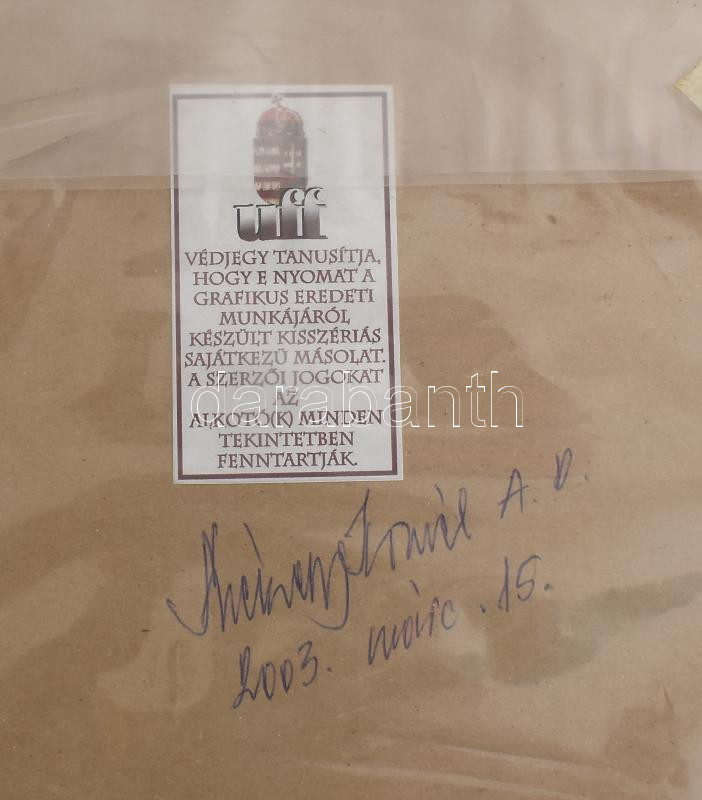 uff
VÉDJEGY TANUSÍTJA,
HOGY E NYOMAT A
GRAFIKUS EREDETI
MUNKÁJÁRÓL
KÉSZÜLT KISSZÉRIÁS
SAJÁTKEZŰ MÁSOLAT.
A SZERZŐI JOGOKAT
AZ
ALKOTÓ(K) MINDEN
TEKINTETBEN
FENNTARTJÁK.
darabanth
A. D.
2003. márc. 15.